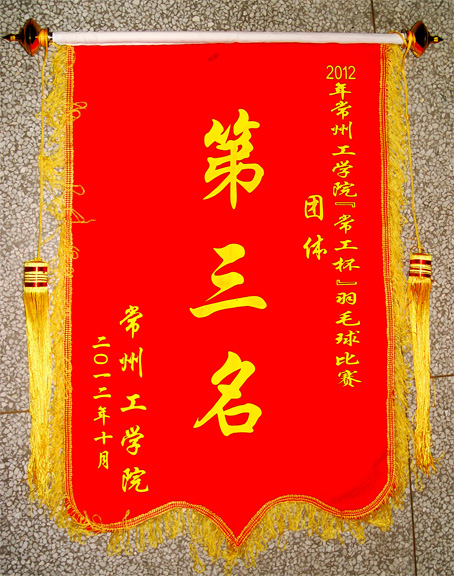 2012年常州工学院『常工杯』羽毛球比赛
团体
第三名
常州工学院
二〇一二年十月